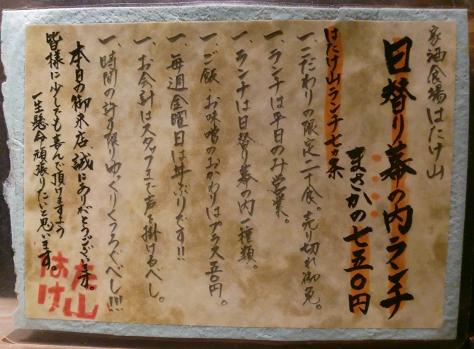 家酒食場はたけ山
日替り幕の内ランチ
まさかの七五〇円
はたけ山ランチ七ヶ条
一、こだわりの限定二十食、売り切れ御免。
一、ランチは平日のみ営業。
一、ランチは日替り幕の内一種類。
一、ご飯、お味噌のおかわりはプラス五〇円。
一、毎週金曜日は丼ぶりです!!
一、お会計はスタッフまで声を掛けるべし。
一、時間の許す限りゆっくりくつろぐべし!!!
本日の御来店、誠にありがとうございます。
皆様に少しでも喜んで頂けますよう
一生懸命頑張りたいと思います。
はたけ山